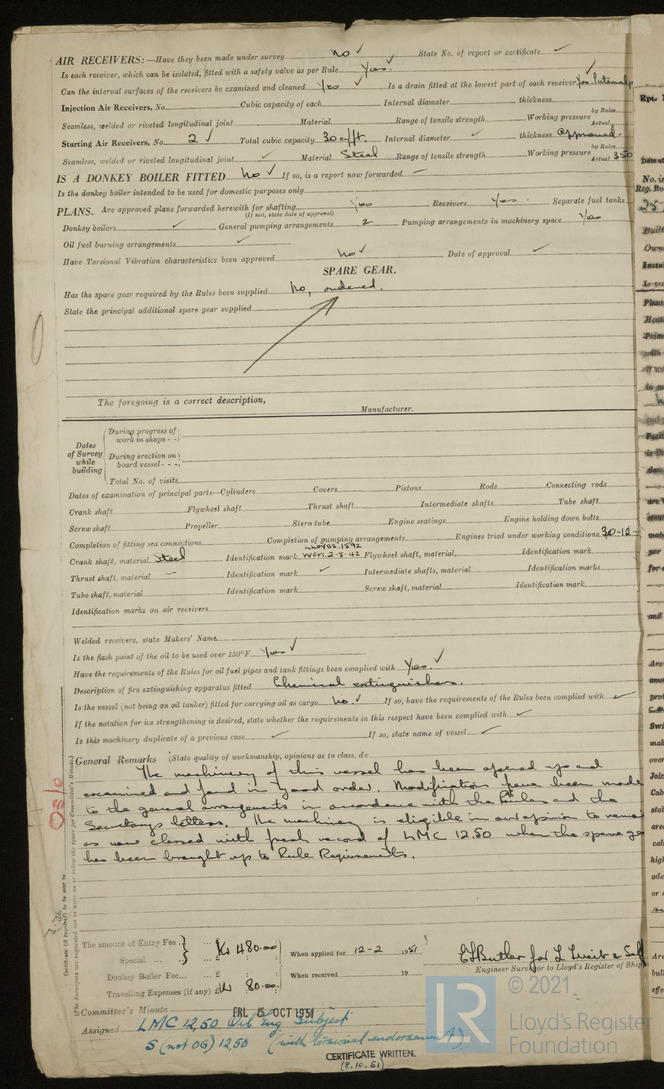 AIR RECEIVERS:—Have they been made under survey No ✓ State No. of report or certificate ✓
Is each receiver, which can be isolated, fitted with a safety valve as per Rule Yes. ✓
Can the internal surfaces of the receivers be examined and cleaned Yes ✓ Is a drain fitted at the lowest part of each receiver Yes.
Injection Air Receivers, No. Cubic capacity of each Internal diameter thickness
Seamless, welded or riveted longitudinal joint Material Range of tensile strength Working pressure by Rules Actual
Starting Air Receivers, No. 2 ✓ Total cubic capacity 30 c/ft. Internal diameter ✓ thickness approved.
Seamless, welded or riveted longitudinal joint ✓ Material Steel Range of tensile strength Working pressure by Rules Actual 350
IS A DONKEY BOILER FITTED No ✓ If so, is a report now forwarded —
Is the donkey boiler intended to be used for domestic purposes only
PLANS. Are approved plans forwarded herewith for shafting Yes Receivers Yes. Separate fuel tanks
(If not, state date of approval)
Donkey boilers ✓ General pumping arrangements 2 Pumping arrangements in machinery space Yes
Oil fuel burning arrangements ✓
Have Torsional Vibration characteristics been approved No ✓ Date of approval ✓
SPARE GEAR.
Has the spare gear required by the Rules been supplied No, ordered.
State the principal additional spare gear supplied
The foregoing is a correct description,
Manufacturer.
Dates of Survey while building
During progress of work in shops - -
During erection on board vessel - - -
Total No. of visits
Dates of examination of principal parts—Cylinders Covers Pistons Rods Connecting rods
Crank shaft Flywheel shaft Thrust shaft Intermediate shafts Tube shaft
Screw shaft Propeller Stern tube Engine seatings Engine holding down bolts
Completion of fitting sea connections Completion of pumping arrangements Engines tried under working conditions 30-12-
Crank shaft, material Steel Identification mark LLOYDS.1592 2-5-42 Flywheel shaft, material Identification mark
Thrust shaft, material — Identification mark ✓ Intermediate shafts, material Identification marks
Tube shaft, material Identification mark Screw shaft, material Identification mark
Identification marks on air receivers
Welded receivers, state Makers' Name
Is the flash point of the oil to be used over 150°F. Yes ✓
Have the requirements of the Rules for oil fuel pipes and tank fittings been complied with Yes. ✓
Description of fire extinguishing apparatus fitted Chemical extinguishers.
Is the vessel (not being an oil tanker) fitted for carrying oil as cargo No. ✓ If so, have the requirements of the Rules been complied with ✓
If the notation for ice strengthening is desired, state whether the requirements in this respect have been complied with ✓
Is this machinery duplicate of a previous case ✓ If so, state name of vessel ✓
General Remarks (State quality of workmanship, opinions as to class, &c.
The machinery of this vessel has been opened up and
examined and found in good order. Modifications have been made
to the general arrangements in accordance with the Rules and the
Secretarys letters. The machinery is eligible in our opinion to
as now classed with fresh record of LMC 12.50 when the spare
has been brought up to Rule Requirements.
Oslo
The amount of Entry Fee ... Kr 480.00 When applied for 12-2 1951
Special ... ... £
Donkey Boiler Fee... ... £ When received 19
Travelling Expenses (if any) £ Kr 80.00
Engineer Surveyor to Lloyd's Register of Ship
Committee's Minute FRI. 5 OCT 1951
Assigned LMC 12,50 Oil Eng. Subject
S (not OG) 12,50 (with torsional endorsement)
CERTIFICATE WRITTEN.
(8.10.51)
LR
© 2021
Lloyd's Register
Foundation